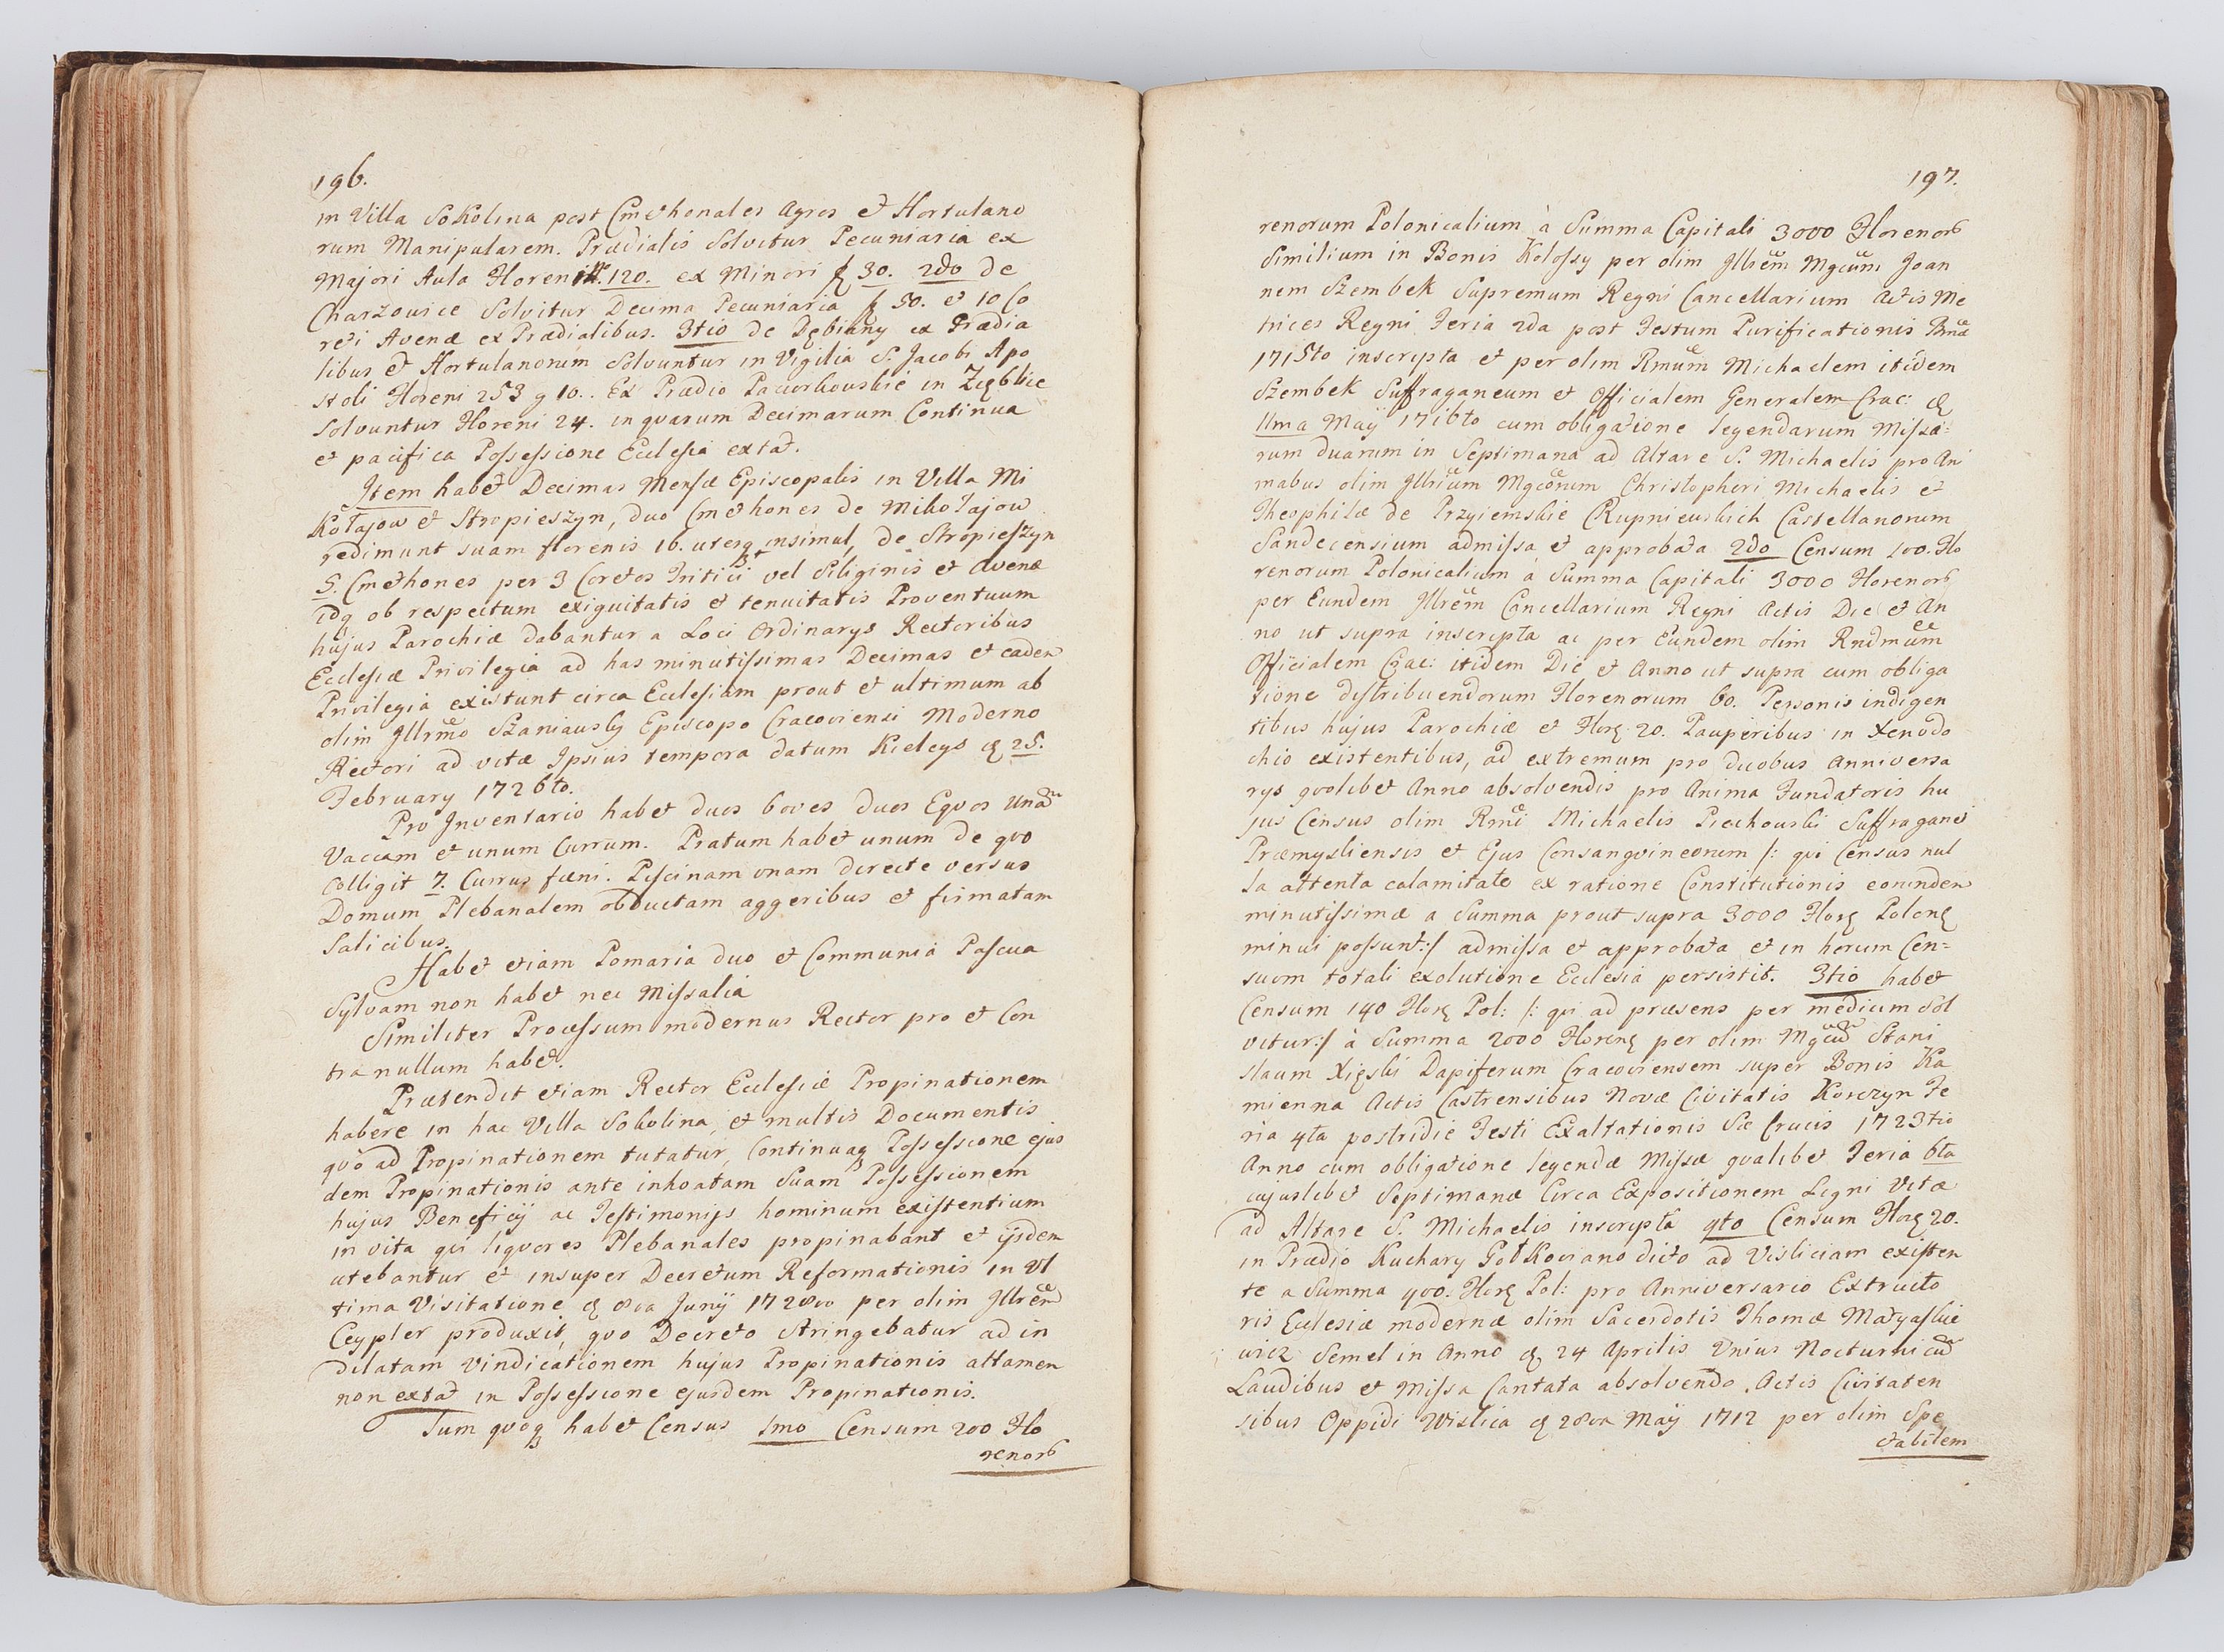 196.
in Villa Sokolina post Cmethonales Agros et Hortulano
rum Manipularem. Prædialis Solvitur Pecuniaria ex
Majori Aula Floreni 120. ex Minori f 30. 2do de
Charzowice Solvitur Decima Pecuniaria f 50. et 10 Co
reti Avenæ ex Prædialibus. 3tio de Dębiany ex Prædia
libus et Hortulanorum Solvuntur in Vigilia S. Jacobi Apo
stoli Floreni 253 g 10.. Ex Prædio Paciorkouskie in Zięblice
Solvuntur Floreni 24. in quarum Decimarum Continua
et pacifica Possessione Ecclesia extat.
Item habet Decimas Mensæ Episcopalis in Villa Mi
kołajow et Stropieszyn, duo Cmethones de Mikołajow
redimunt suam florenis 16. uterq insimul, de Stropieszyn
5. Cmethones per 3 Coretos Tritici vel Siliginis et Avenæ
idq ob respectum exiguitatis et tenuitatis Proventuum
hujus Parochiæ dabantur a Loci Ordinarys Rectoribus
Ecclesiæ Privilegia ad has minutissimas Decimas et eadem
Privilegia existunt circa Ecclesiam prout et ultimum ab
olim Illrmo Szaniausky Episcopo Cracoviensi Moderno
Rectori ad vitæ Ipsius tempora datum Kielcys d 25.
February 1726to.
Pro Inventario habet duos boves duos Equos Unam
Vaccam et unum Currum. Pratum habet unum de quo
Colligit 7. Currus fæni. Piscinam unam directe versus
Domum Plebanalem obductam aggeribus et firmatam
Salicibus.
Habet etiam Pomaria duo et Communia Pascua
Sylvam non habet nec Missalia
Similiter Processum modernus Rector pro et Con
tra nullum habet.
Prætendit etiam Rector Ecclesiæ Propinationem
habere in hac Villa Sokolina, et multis Documentis
quo ad Propinationem tutatur, Continuaq Possessione ejus
dem Propinationis ante inhoatam Suam Possessionem
hujus Beneficij ac Testimonijs hominum existentium
in vita qui liquores Plebanales propinabant et ijsdem
utebantur et insuper Decretum Reformationis in Ul
tima Visitatione d 8va Junij 1728vo per olim Illrem
Ceypler produxit, quo Decreto stringebatur ad in
dilatam vindicationem hujus Propinationis attamen
non extat in Possessione ejusdem Propinationis.
Tum quoq habet Census 1mo Censum 200 Flo
renor
197.
renorum Polonicalium à Summa Capitali 3000 Florenor
Similium in Bonis Kolossy per olim Illrem Mgcum Joan
nem Szembek Supremum Regni Cancellarium Actis Me
trices Regni Feria 2da post Festum Purificationis Bmæ
1715to inscripta et per olim Rmum Michaelem itidem
Szembek Suffraganeum et Officialem Generalem Crac: d
11ma Maÿ 1716to cum obligatione legendarum Missa=
rum duarum in Septimana ad Altare S. Michaelis pro Ani
mabus olim Illrium Mgcorum Christopheri Michaelis et
Theophilæ de Przyiemskie Rupnieuskich Castellanorum
Sandecensium admissa et approbata 2do Censum 100. Flo
renorum Polonicalium à Summa Capitali 3000 Florenor
per Eundem Illrem Cancellarium Regni Actis Die et An
no ut supra inscripta ac per Eundem olim Rndmum
Officialem Crac: itidem Die et Anno ut supra cum obliga
tione distribuendorum Florenorum 60. Personis indigen
tibus hujus Parochiæ et Flor 20. Pauperibus in Xenodo
chio existentibus, ad extremum pro duobus Anniversa
rys quolibet Anno absolvendis pro Anima Fundatoris hu
jus Census olim Rmi Michaelis Piechouski Suffraganei
Præmysliensis et Ejus Consangvineorum /: qui Census nul
la attenta calamitate ex ratione Constitutionis eorundem
minutissimæ a Summa prout supra 3000 Flor Polon
minui possunt:/ admissa et approbata et in horum Cen=
suum totali exolutione Ecclesia persistit. 3tio habet
Censum 140 Flor Pol: /: qui ad præsens per medium Sol
vitur:/ à Summa 2000 Floren per olim Mgcum Stani
slaum Xięski Dapiferum Cracoviensem super Bonis Ka
mienna Actis Castrensibus Novæ Civitatis Korczyn Fe
ria 4ta postridie Festi Exaltationis Sæ Crucis 1723tio
Anno cum obligatione legendæ Missæ qualibet Feria 6ta
cujuslibet Septimanæ Circa Expositionem Ligni Vitæ
ad Altare S. Michaelis inscripta 4to Censum Flor 20.
in Prædio Kuchary Gołkoviano dicto ad Visliciam existen
te a Summa 400. Flor Pol: pro Anniversario Extructo
ris Ecclesiæ modernæ olim Sacerdotis Thomæ Matyaskie
wicz Semel in Anno d 24 Aprilis Unius Nocturni cum
Laudibus et Missa Cantata absolvendo, Actis Civitaten
sibus Oppidi Wislica d 28va Maÿ 1712 per olim Spe
ctabilem